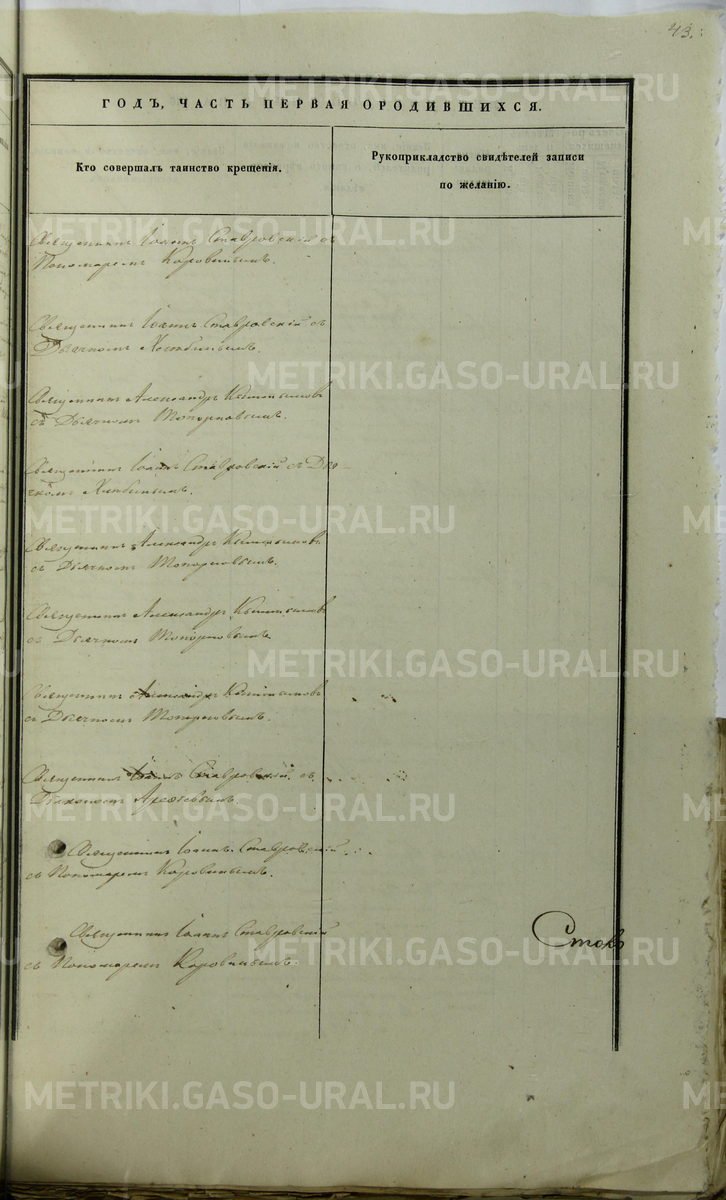 43.
ГОДЪ, ЧАСТЬ ПЕРВАЯ О РОДИВШИХСЯ.
Кто совершалъ таинство крещенія.
Рукоприкладство свидѣтелей записи
по желанію.
Священникъ Іоаннъ Ставровскій съ
Пономаремъ Коровинымъ.
Священникъ Іоаннъ Ставровскій съ
Дьячкомъ
Священникъ Александръ Кыштымовъ
съ Дьячкомъ Топорковымъ.
Священникъ Іоаннъ Ставровскій съ Дья-
чкомъ
Священникъ Александръ Кыштымовъ
съ Дьячкомъ Топорковымъ.
Священникъ Александръ Кыштымовъ
съ Дьячкомъ Топорковымъ
Священникъ Александръ Кыштымовъ
съ Дьячкомъ Топорковымъ.
Священникъ Іоаннъ Ставровскій съ
Священникъ Іоаннъ Ставровскій
съ Пономаремъ Коровинымъ.
Священникъ Іоаннъ Ставровскій
съ Пономаремъ Коровинымъ.
METRIKI.GASO-URAL.RU